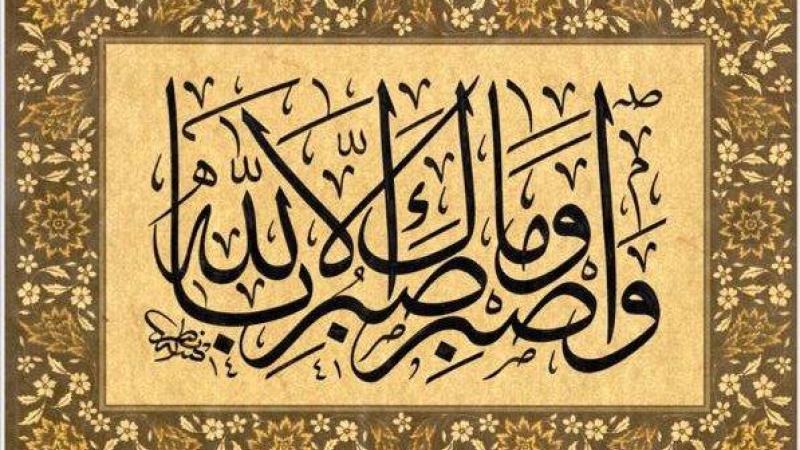 وَاصْبِرْ وَمَا صَبْرُكَ إِلَّا بِاللَّهِ
١٤١٤